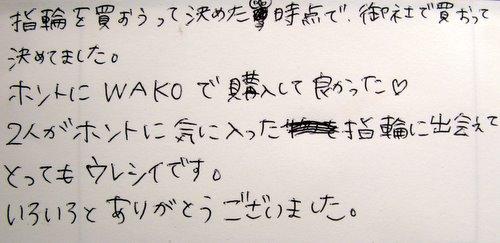 指輪を買おうって決めた時点で、御社で買おって
決めてました。
ホントに WAKO で購入して良かった♡
2人がホントに気に入った指輪に出会えて
とってもウレシイです。
いろいろとありがとうございました。